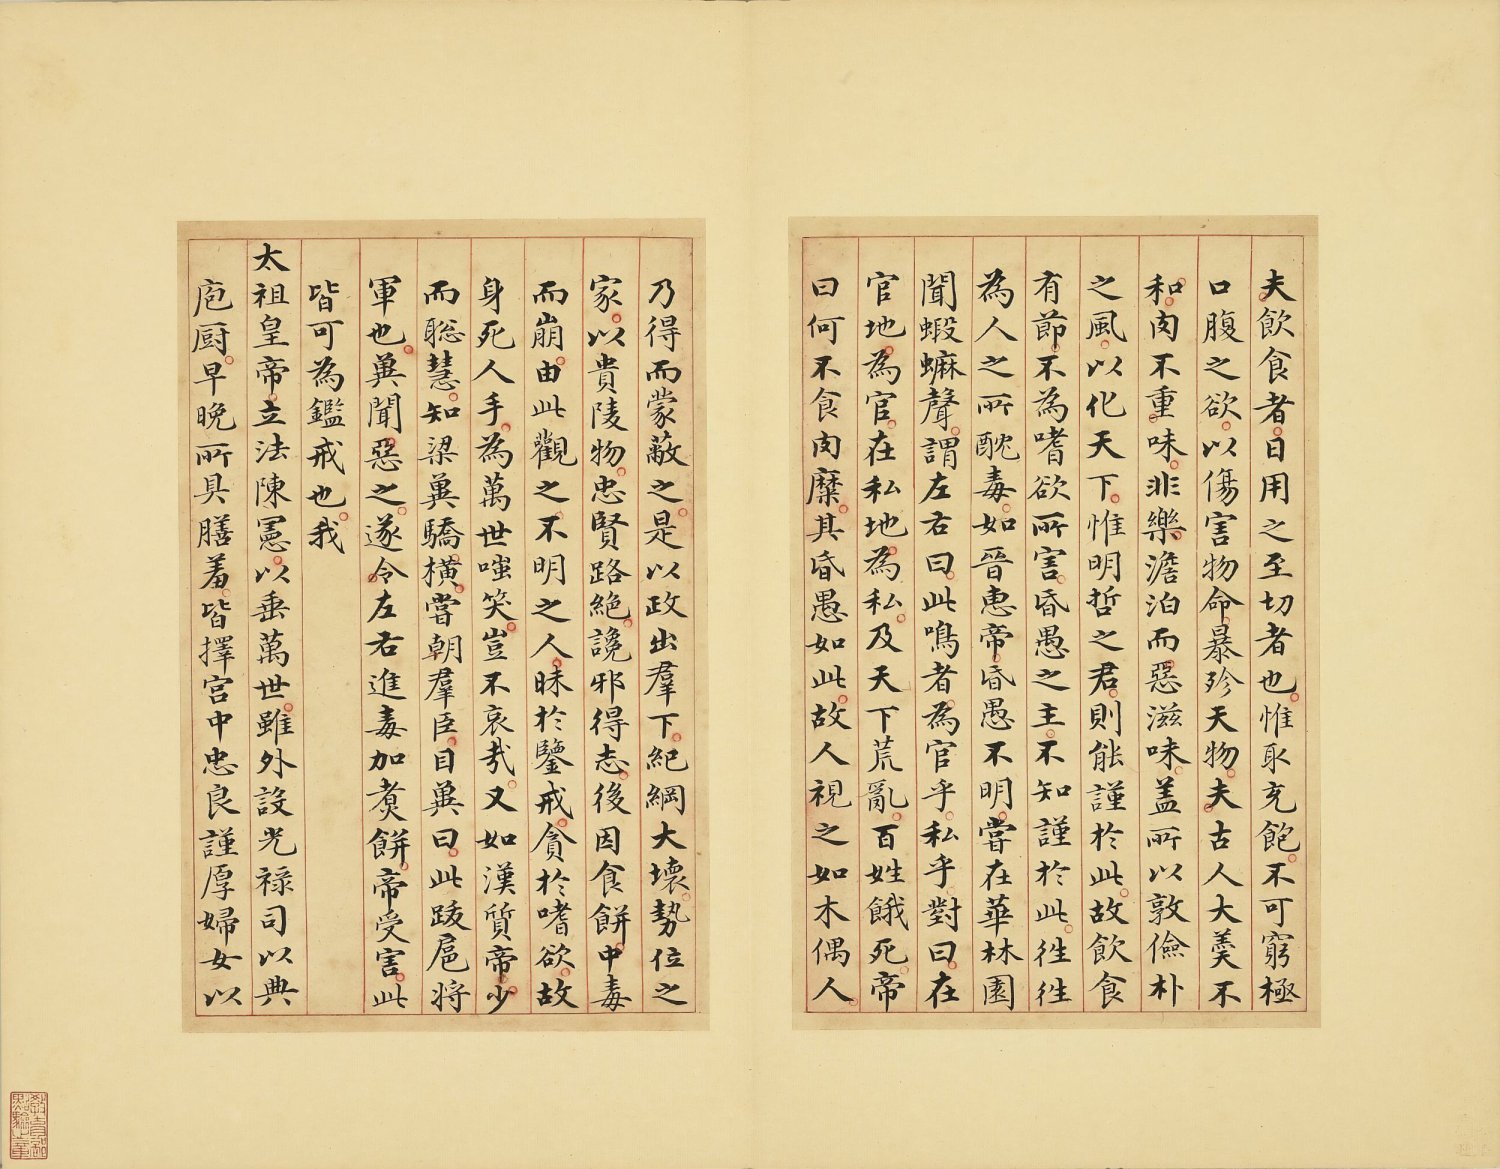 夫飲食者日用之至切者也惟取充飽不可窮極
口腹之欲以傷害物命暴殄天物夫古人大羹不
和肉不重味非樂澹泊而惡滋味蓋所以敦儉朴
之風以化天下惟明哲之君則能謹於此故飲食
有節不為嗜欲所害昏愚之主不知謹於此往往
為人之所酖毒如晉惠帝昏愚不明嘗在華林園
聞蝦蟆聲謂左右曰此鳴者為官乎私乎對曰在
官地為官在私地為私及天下荒亂百姓餓死帝
曰何不食肉糜其昏愚如此故人視之如木偶人
乃得而蒙蔽之是以政出羣下紀綱大壞勢位之
家以貴陵物忠賢路絕讒邪得志後因食餅中毒
而崩由此觀之不明之人昧於鑒戒貪於嗜欲故
身死人手為萬世嗤笑豈不哀哉又如漢質帝少
而聰慧知梁冀驕橫嘗朝羣臣目冀曰此跋扈將
軍也冀聞惡之遂令左右進毒加煑餅帝受害此
皆可為鑑戒也我
太祖皇帝立法陳憲以垂萬世雖外設光祿司以典
庖厨早晚所具膳羞皆擇宮中忠良謹厚婦女以